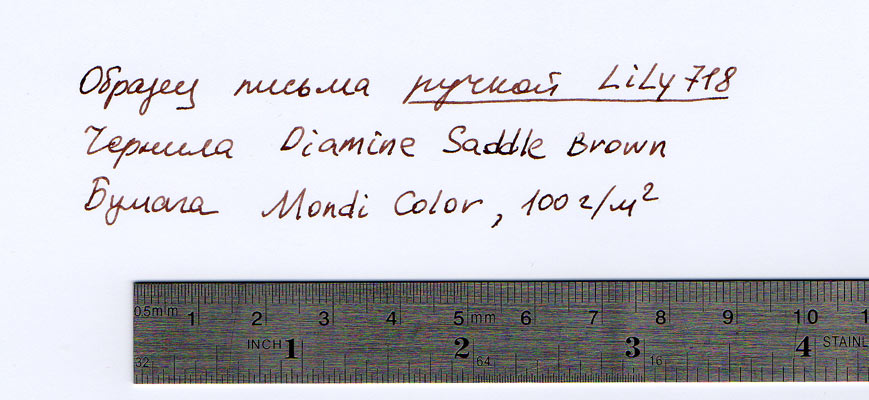 Образец письма ручкой LiLy 718
Чернила Diamine Saddle Brown
Бумага Mondi Color, 100 г/м²
0.5mm 1 2 3 4 5 mm 6 7 8 9 10 1
INCH 1 2 3 4 STAINL
32 64 16